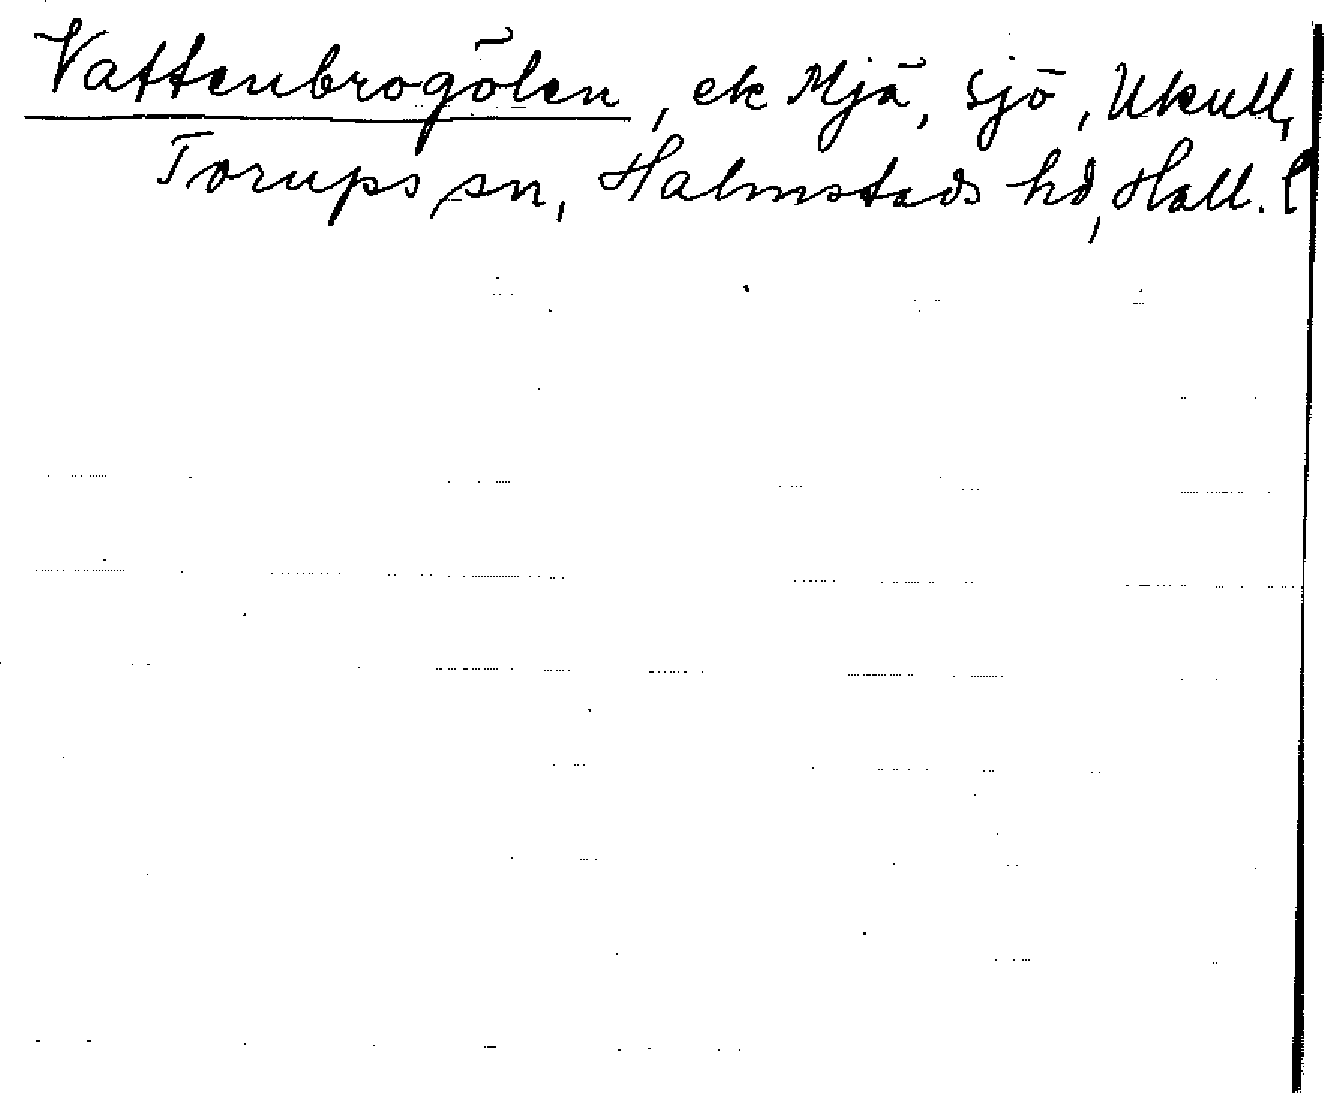 Vattenbrogölen, ek Mjä, sjö, Ukull,
Torups sn, Halmstads hd, Hall. l